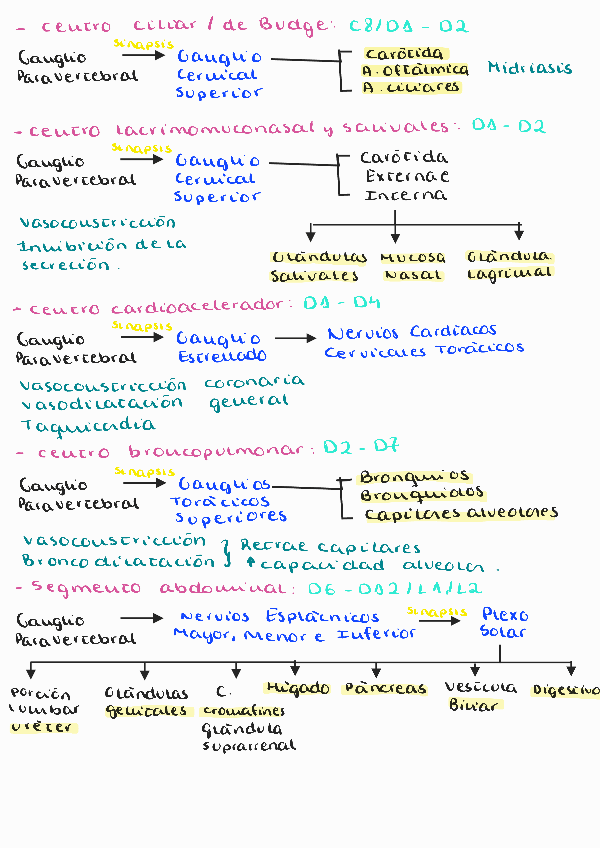 - centro ciliar / de Budge: C8/D1 - D2
sinapsis
Ganglio Ganglio Carótida
Paravertebral Cervical A. oftálmica Midriasis
Superior A. ciliares
- centro lacrimomuconasal y salivales: D1 - D2
sinapsis
Ganglio Ganglio Carótida
Paravertebral Cervical Externa e
Superior Interna
Vasoconstricción
Inhibición de la
secreción.
Glándulas Mucosa Glándula
Salivales Nasal Lagrimal
- centro cardioacelerador: D1 - D4
sinapsis
Ganglio Ganglio Nervios Cardíacos
Paravertebral Estrellado Cervicales Torácicos
Vasoconstricción coronaria
Vasodilatación general
Taquicardia
- centro broncopulmonar: D2 - D7
sinapsis
Ganglio Ganglios Bronquios
Paravertebral Torácicos Bronquiolos
Superiores Capilares alveolares
Vasoconstricción } Retrae capilares
Broncodilatación } ↑ capacidad alveolar.
- Segmento abdominal: D6 - D12/L1/L2
Ganglio Nervios Esplácnicos sinapsis Plexo
Paravertebral Mayor, Menor e Inferior Solar
Porción Glándulas C. Hígado Páncreas Vesícula Digestivo
lumbar genitales cromafines Biliar
uréter glándula
suprarrenal